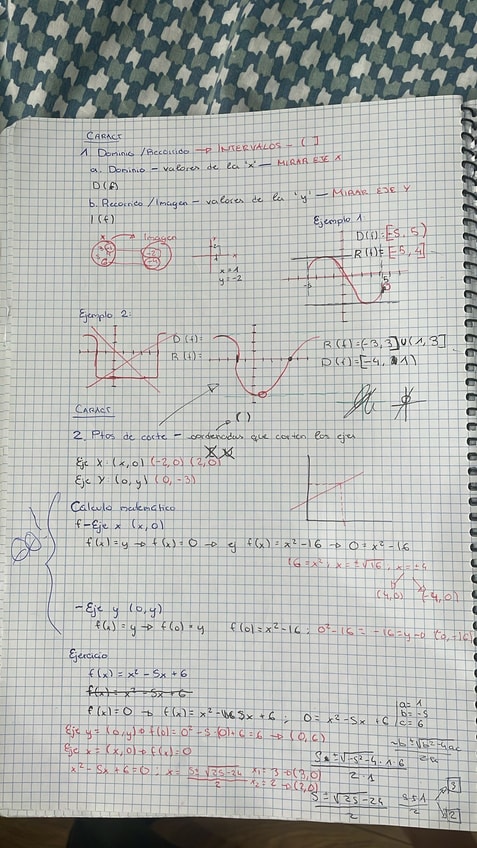 CARACT
1. Dominio / Recorrido → INTERVALOS - ( ]
a. Dominio - valores de la 'x' - MIRAR EJE X
D(f)
b. Recorrido / Imagen - valores de la 'y' - MIRAR EJE Y
I(f)
Imagen
x=1
y=-2
Ejemplo 1:
D(f)=[-5, 5)
R(f)=[-5, 4]
Ejemplo 2:
D(f):
R(f)=
R(f)=(-3,3]U(1,3]
D(f)=[-4, 1)
( )
CARACT
2. Ptos de corte - coordenadas que corten los ejes
Eje X: (x,0) (-2,0) (2,0)
Eje Y (0,y) (0,-3)
Cálculo matemático
f - Eje x (x,0)
f(x)=y → f(x)=0 → ej f(x)=x²-16 → 0=x²-16
16=x²; x=±√16, x=±4
(4,0) (-4,0)
- Eje y (0,y)
f(x)=y → f(0)=y f(0)=x²-16; 0²-16=-16=y → (0,-16)
Ejercicio
f(x)=x²-5x+6
f(x)=x²-5x+6
f(x)=0 → f(x)=x²-5x+6; 0=x²-5x+6
a=1
b=-5
c=6
Eje y=(0,y) → f(0)=0²-5·(0)+6=6 → (0,6)
Eje x=(x,0) → f(x)=0
x²-5x+6=0; x=5±√25-24/2 x₁=3→(3,0)
x₂=2→(2,0)
-b±√b²-4ac/2a
5±√-5²-4·1·6/2·1
5±√25-24/2
5±1/2
3
2